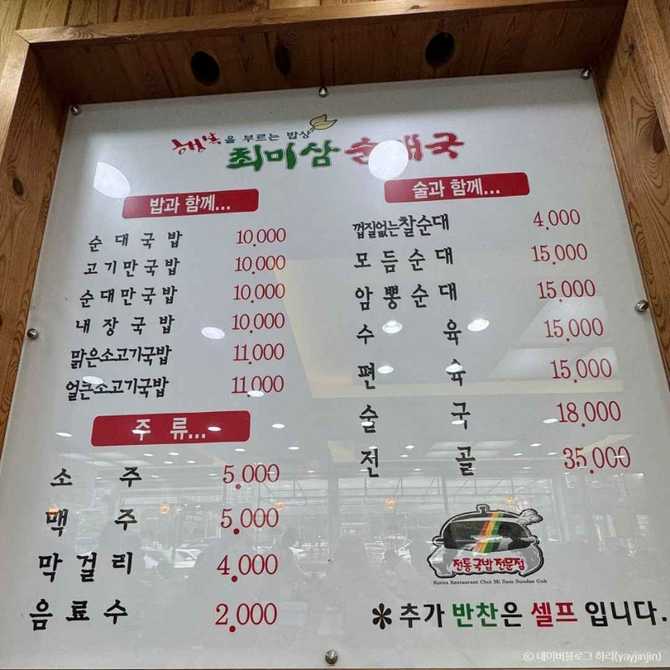 행복을 부르는 밥상
최미삼 순대국
밥과 함께...
순대국밥 10,000
고기만국밥 10,000
순대만국밥 10,000
내장국밥 10,000
맑은소고기국밥 11,000
얼큰소고기국밥 11,000
주 류...
소 주 5,000
맥 주 5,000
막걸리 4,000
음료수 2,000
술과 함께...
껍질없는찰순대 4,000
모듬순대 15,000
암뽕순대 15,000
수 육 15,000
편 육 15,000
술 국 18,000
전 골 35,000
전통국밥전문점
Korea Restaurant Choi Mi Sam Sundae Guk
*추가 반찬은 셀프 입니다.
© 네이버블로그 하리(yayjinjin)